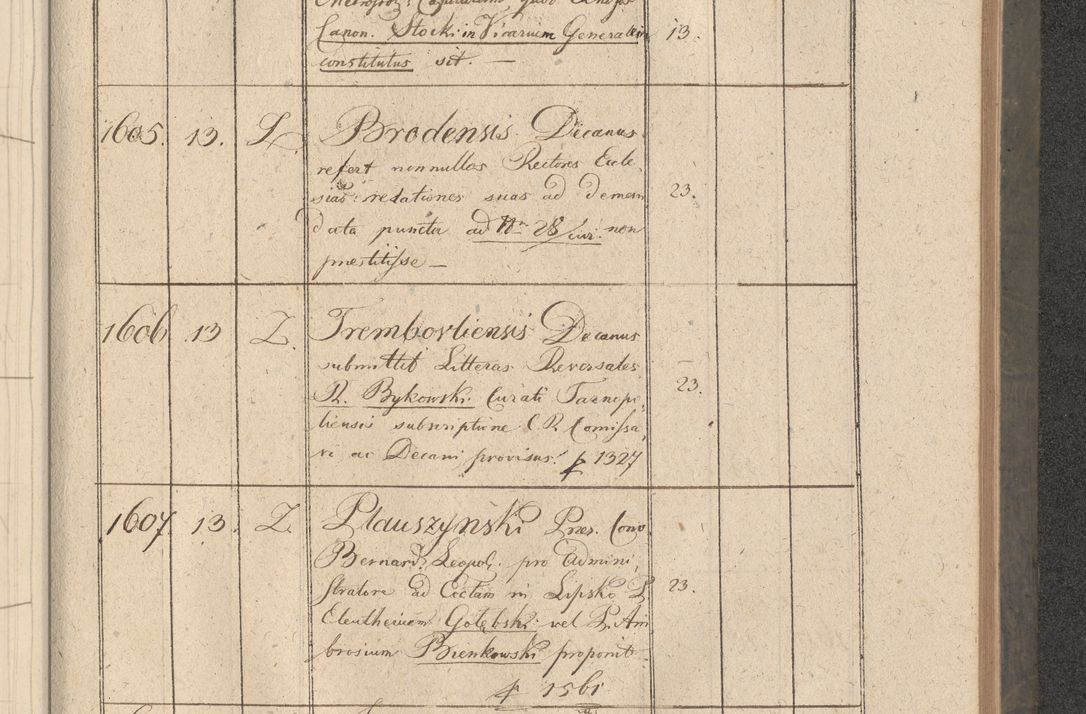 Canon. Stocki in Vicarium Generalem 13.
constitutus sit. —
1605. 13. L. Brodensis Decanus
refert nonnullos Rectores Eccle,
sias: relationes suas ad deman
data puncta ad Nrm 28/cur. non 23.
præstitisse —
1606 13 L. Trembovliensis Decanus
submittit Litteras Reversales
R. Bykowski Curati Tarnopo, 23.
liensis subscriptione C. R. Comissa,
ri ac Decani provisas. p 1327
1607. 13. L Plauszynski Præs. Conv.
Bernard. Leopol. pro Admini,
stratore ad Ecclam in Lipsko P. 23.
Eleutherium Gołębski vel P. Am
brosium Bienkowski proponit
p 1561